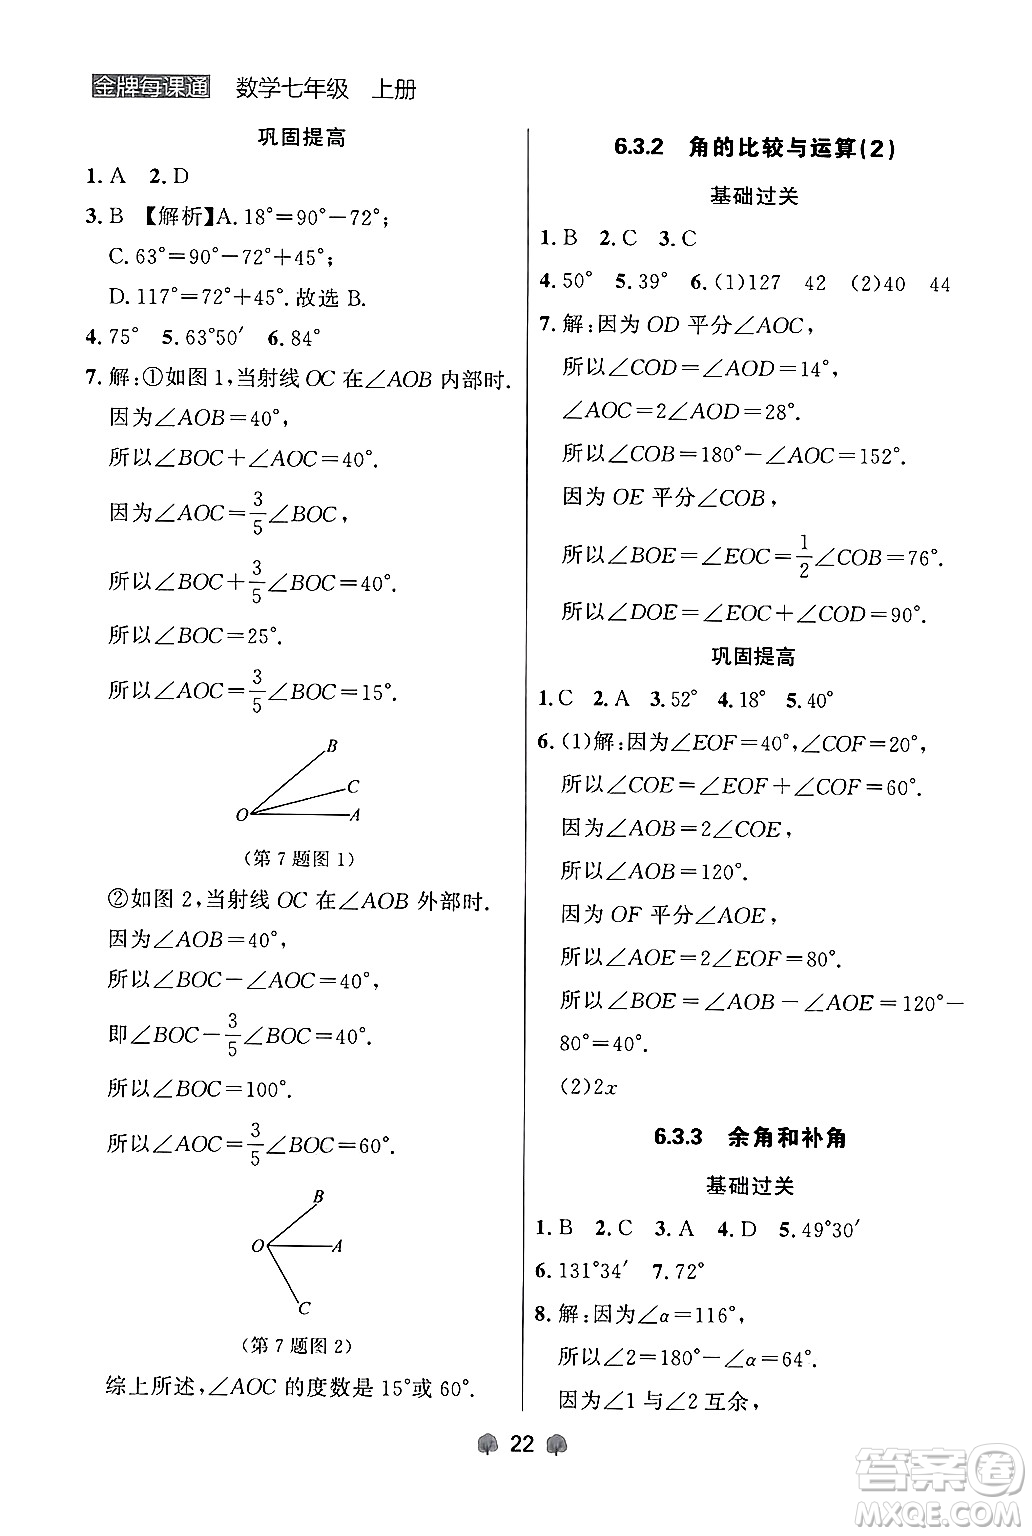 金牌每课通 数学七年级 上册
巩固提高
1. A 2. D
3. B 【解析】A. 18°=90°-72°;
C. 63°=90°-72°+45°;
D. 117°=72°+45°. 故选 B.
4. 75° 5. 63°50′ 6. 84°
7. 解:①如图 1,当射线 OC 在∠AOB 内部时.
因为∠AOB=40°,
所以∠BOC+∠AOC=40°.
因为∠AOC=3/5∠BOC,
所以∠BOC+3/5∠BOC=40°.
所以∠BOC=25°.
所以∠AOC=3/5∠BOC=15°.
B
C
O A
(第 7 题图 1)
②如图 2,当射线 OC 在∠AOB 外部时.
因为∠AOB=40°,
所以∠BOC-∠AOC=40°,
即∠BOC-3/5∠BOC=40°.
所以∠BOC=100°.
所以∠AOC=3/5∠BOC=60°.
B
O A
C
(第 7 题图 2)
综上所述,∠AOC 的度数是 15°或 60°.
6.3.2 角的比较与运算(2)
基础过关
1. B 2. C 3. C
4. 50° 5. 39° 6. (1)127 42 (2)40 44
7. 解:因为 OD 平分∠AOC,
所以∠COD=∠AOD=14°,
∠AOC=2∠AOD=28°.
所以∠COB=180°-∠AOC=152°.
因为 OE 平分∠COB,
所以∠BOE=∠EOC=1/2∠COB=76°.
所以∠DOE=∠EOC+∠COD=90°.
巩固提高
1. C 2. A 3. 52° 4. 18° 5. 40°
6. (1)解:因为∠EOF=40°,∠COF=20°,
所以∠COE=∠EOF+∠COF=60°.
因为∠AOB=2∠COE,
所以∠AOB=120°.
因为 OF 平分∠AOE,
所以∠AOE=2∠EOF=80°.
所以∠BOE=∠AOB-∠AOE=120°-
80°=40°.
(2)2x
6.3.3 余角和补角
基础过关
1. B 2. C 3. A 4. D 5. 49°30′
6. 131°34′ 7. 72°
8. 解:因为∠α=116°,
所以∠2=180°-∠α=64°.
因为∠1 与∠2 互余,
22
答案圈
MXQE.COM